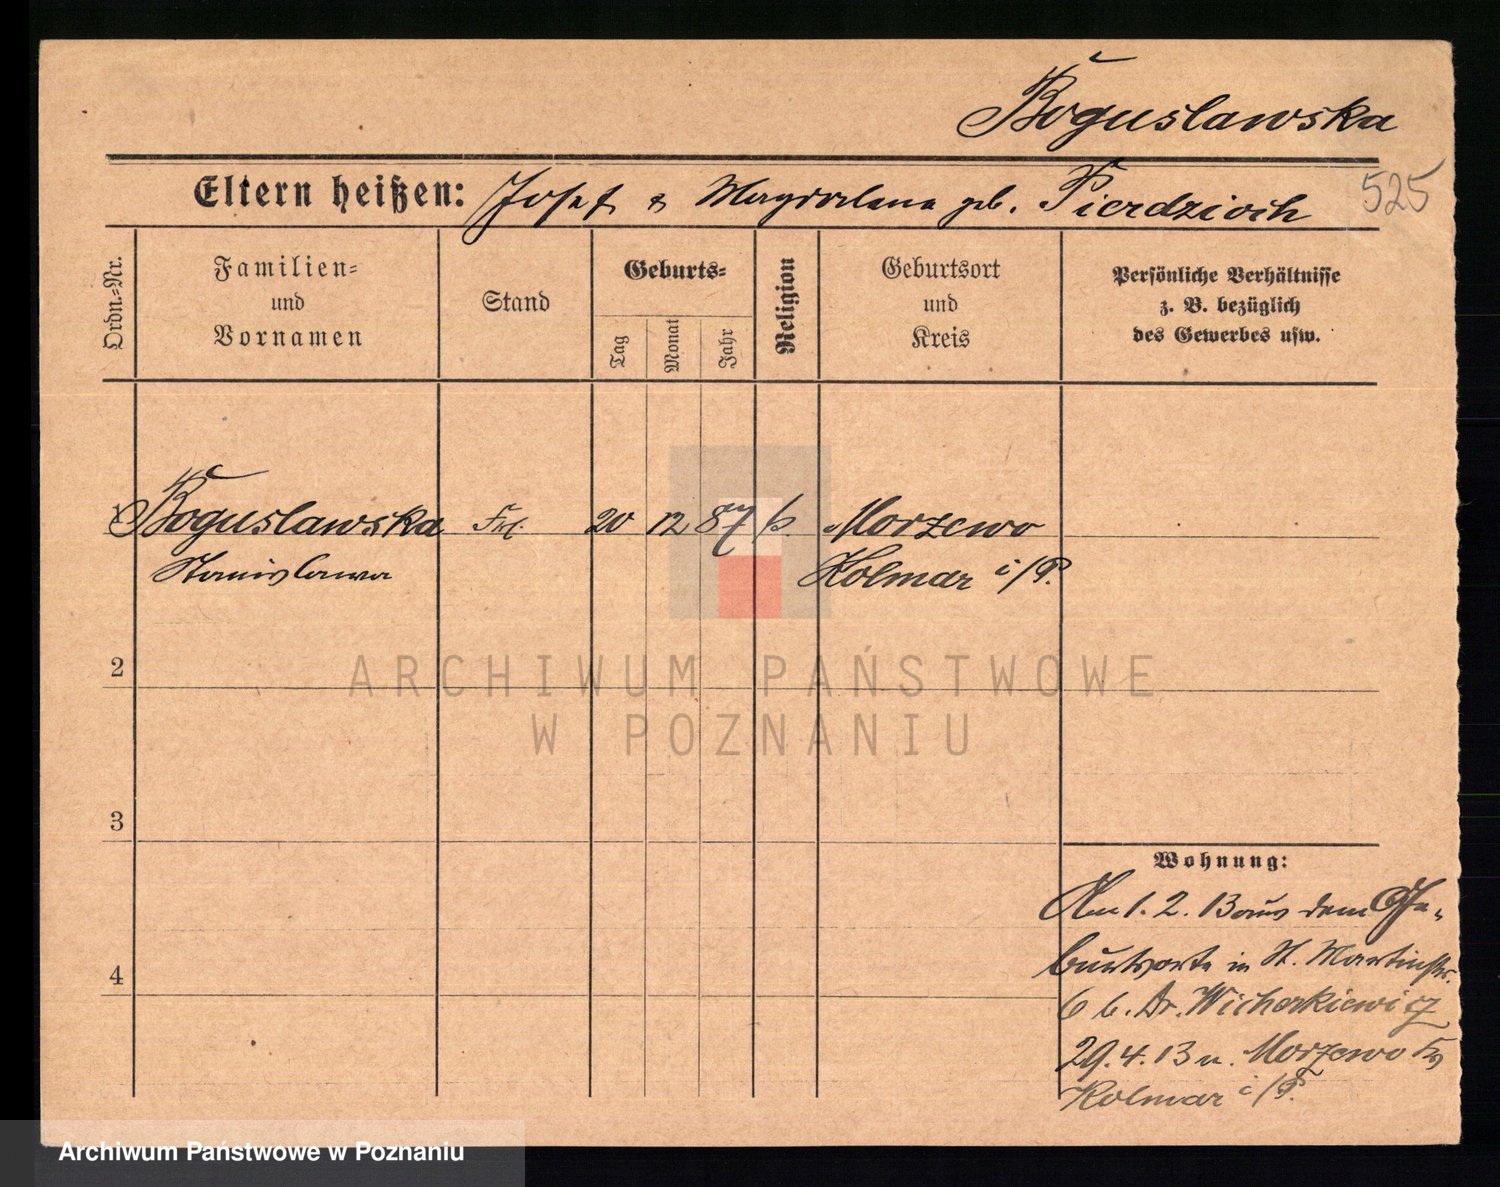 Boguslawska
Eltern heißen: Josef & Magdalena geb. Pierdzioch
525
Ordn.=Nr.
Familien=
und
Vornamen
Stand
Geburts=
Tag
Monat
Jahr
Religion
Geburtsort
und
Kreis
Persönliche Verhältnisse
z. B. bezüglich
des Gewerbes usw.
Boguslawska Frl. 20 12 87 k. Morzewo
Stanislawa Kolmar i/P.
2
3
4
Wohnung:
Am 1. 2. 13 aus dem Ge-
burtsorte in St. Martinstr.
6 b. Dr. Wicherkiewicz
29.4.13 n. Morzewo Krs
Kolmar i/P.
ARCHIWUM PAŃSTWOWE
W POZNANIU
Archiwum Państwowe w Poznaniu